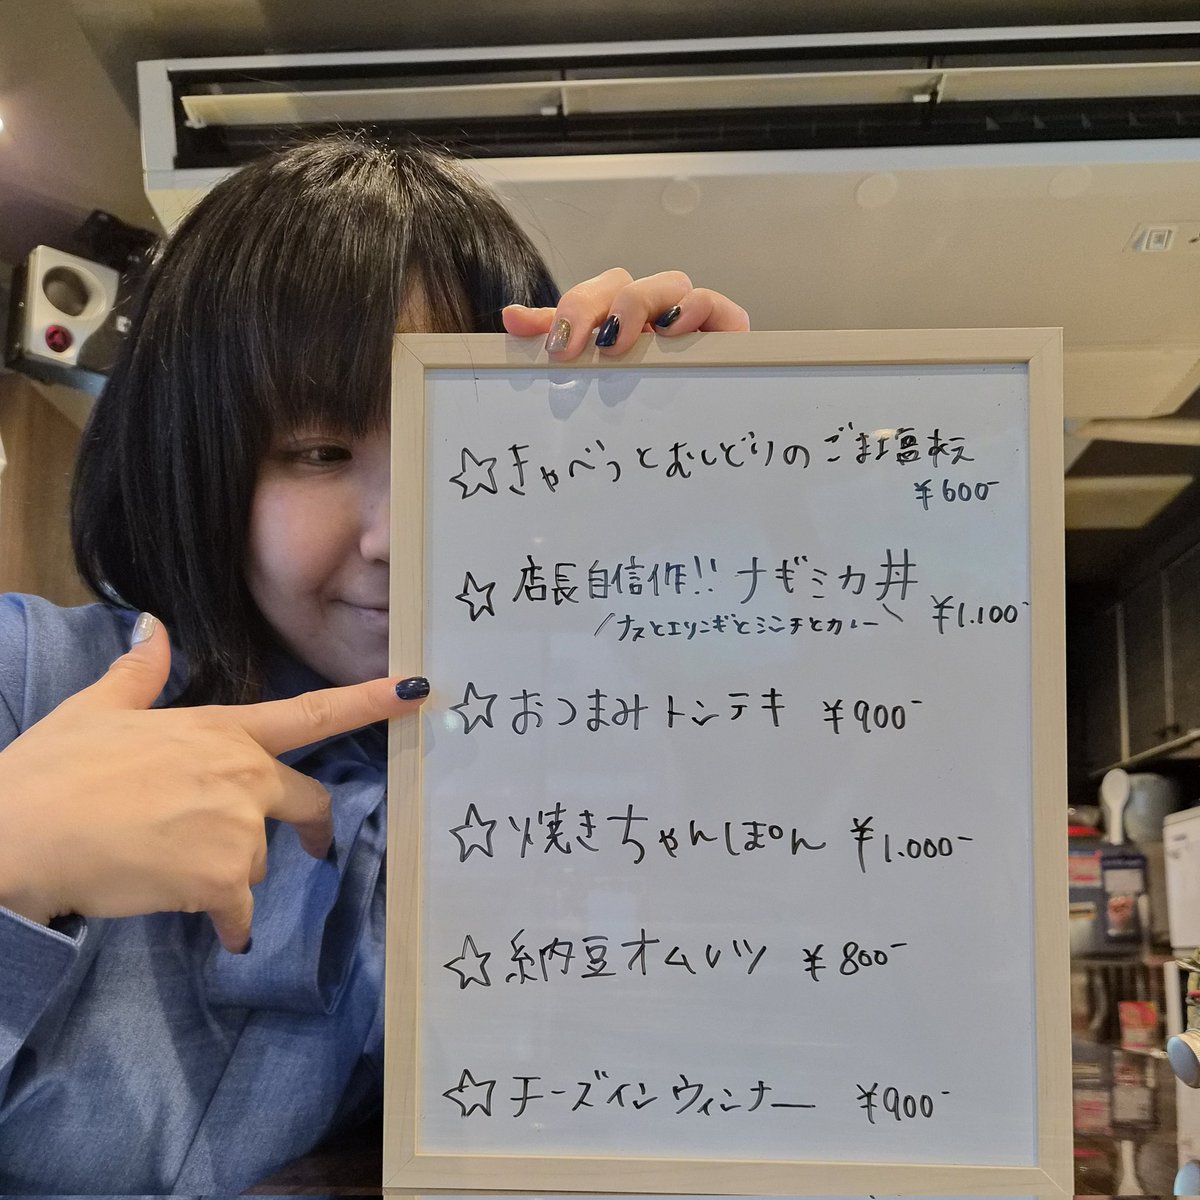 ☆きゃべつとむしどりのごま塩和え
¥600-
☆店長自信作!! ナギミカ丼 ¥1.100-
/ナスとエリンギとミンチとカレー\
☆おつまみトンテキ ¥900-
☆焼きちゃんぽん ¥1.000-
☆納豆オムレツ ¥800-
☆チーズインウィンナー ¥900-